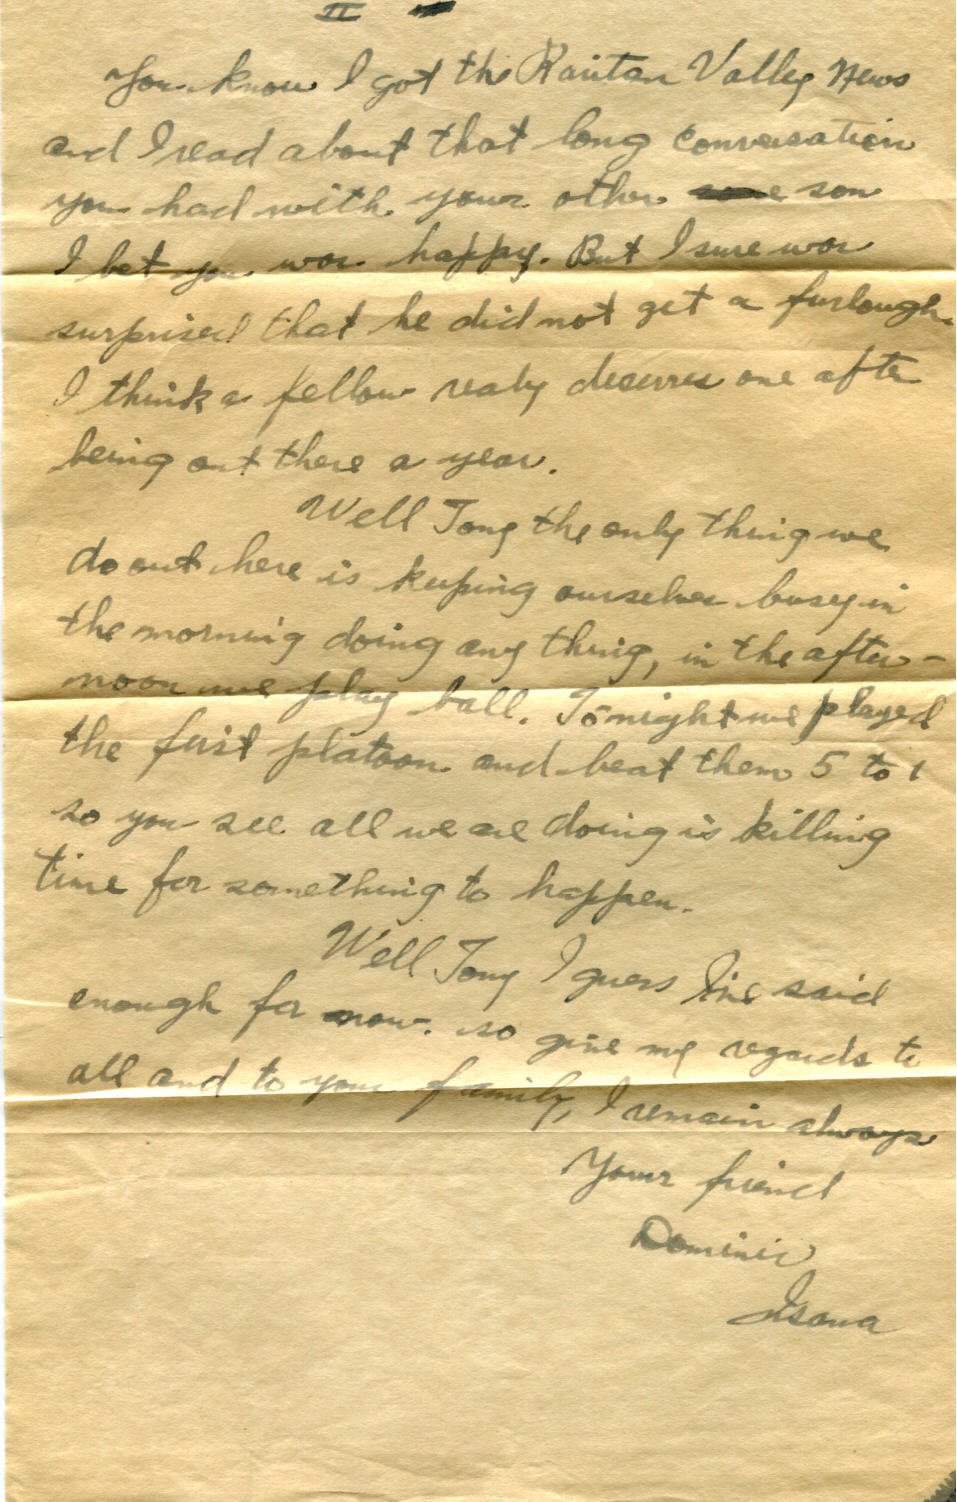 II
You know I got the Raritan Valley News
and I read about that long conversation
you had with your other son
I bet you was happy. But I sure was
surprised that he did not get a furlough.
I think a fellow realy deserves one after
being out there a year.
Well Tony the only thing we
do out here is keeping ourselves busy in
the morning doing any thing, in the after-
noon we play ball. Tonight we played
the first platoon and beat them 5 to 1
so you see all we are doing is killing
time for something to happen.
Well Tony I guess I've said
enough for now. so give my regards to
all and to your family, I remain always
Your friend
Dominic